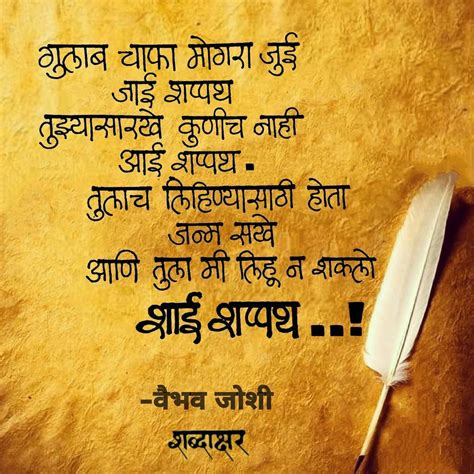 गुलाब चाफा मोगरा जुई
जाई शप्पथ
तुझ्यासारखे कुणीच नाही
आई शप्पथ.
तुलाच लिहिण्यासाठी होता
जन्म सखे
आणि तुला मी लिहू न शकलो
शाई शप्पथ ..!
-वैभव जोशी
शब्दाक्षर